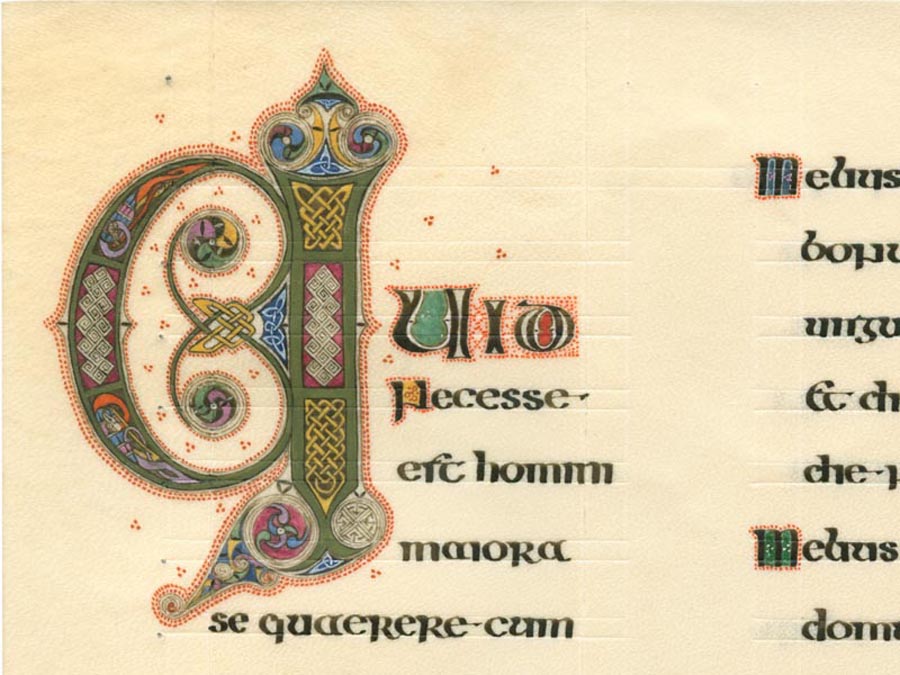 QUID
Necesse
est homini
maiora
se quaerere cum
Melius
bonu
ungu
Et di
die
Melius
domu